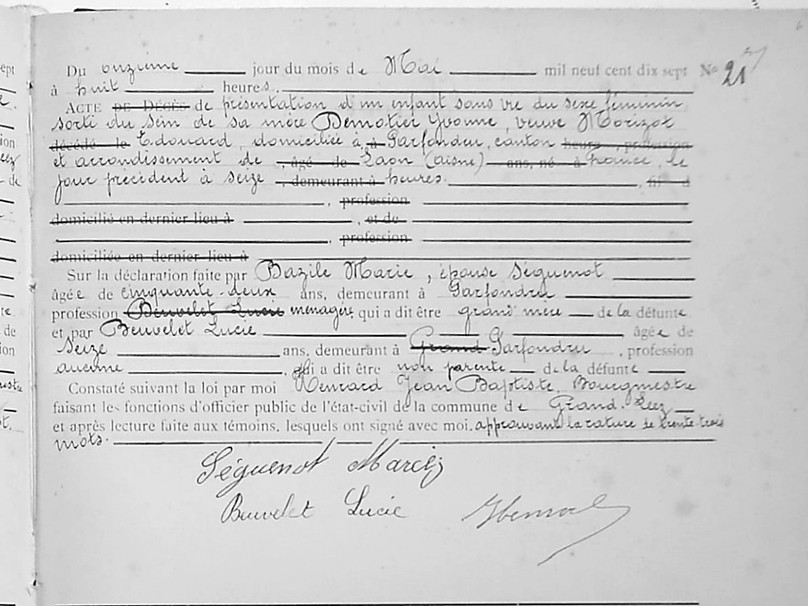 Du onzième jour du mois de Mai mil neuf cent dix sept No 21
à huit heures.
ACTE DE DÉCÈS de présentation d'un enfant sans vie du sexe féminin
sorti du sein de sa mère Demotier Yvonne, veuve Morizot
décédé le Edouard, domiciliée à à Garfondru, canton heure, profession
et arrondissement de , âgé de Laon (aisne) ans, né à france, le
jour précédent à seize , demeurant à heures. , fil d
, profession
domicilié en dernier lieu à , et de
, profession
domiciliée en dernier lieu à
Sur la déclaration faite par Bazile Marie, épouse Séguenot
âgée de cinquante-deux ans, demeurant à Garfondru
profession Beuvelet Lucie ménagère qui a dit être grand'mère de la défunte
et par Beuvelet Lucie âgée de
seize ans, demeurant à Grand Garfondru , profession
aucune , qui a dit être non parente de la défunte
Constaté suivant la loi par moi Henrard Jean Baptiste, Bourgmestre
faisant les fonctions d'officier public de l'état-civil de la commune de Grand-Leez
et après lecture faite aux témoins, lesquels ont signé avec moi, approuvant la rature de trente trois
mots.
Séguenot Marie
Beuvelet Lucie